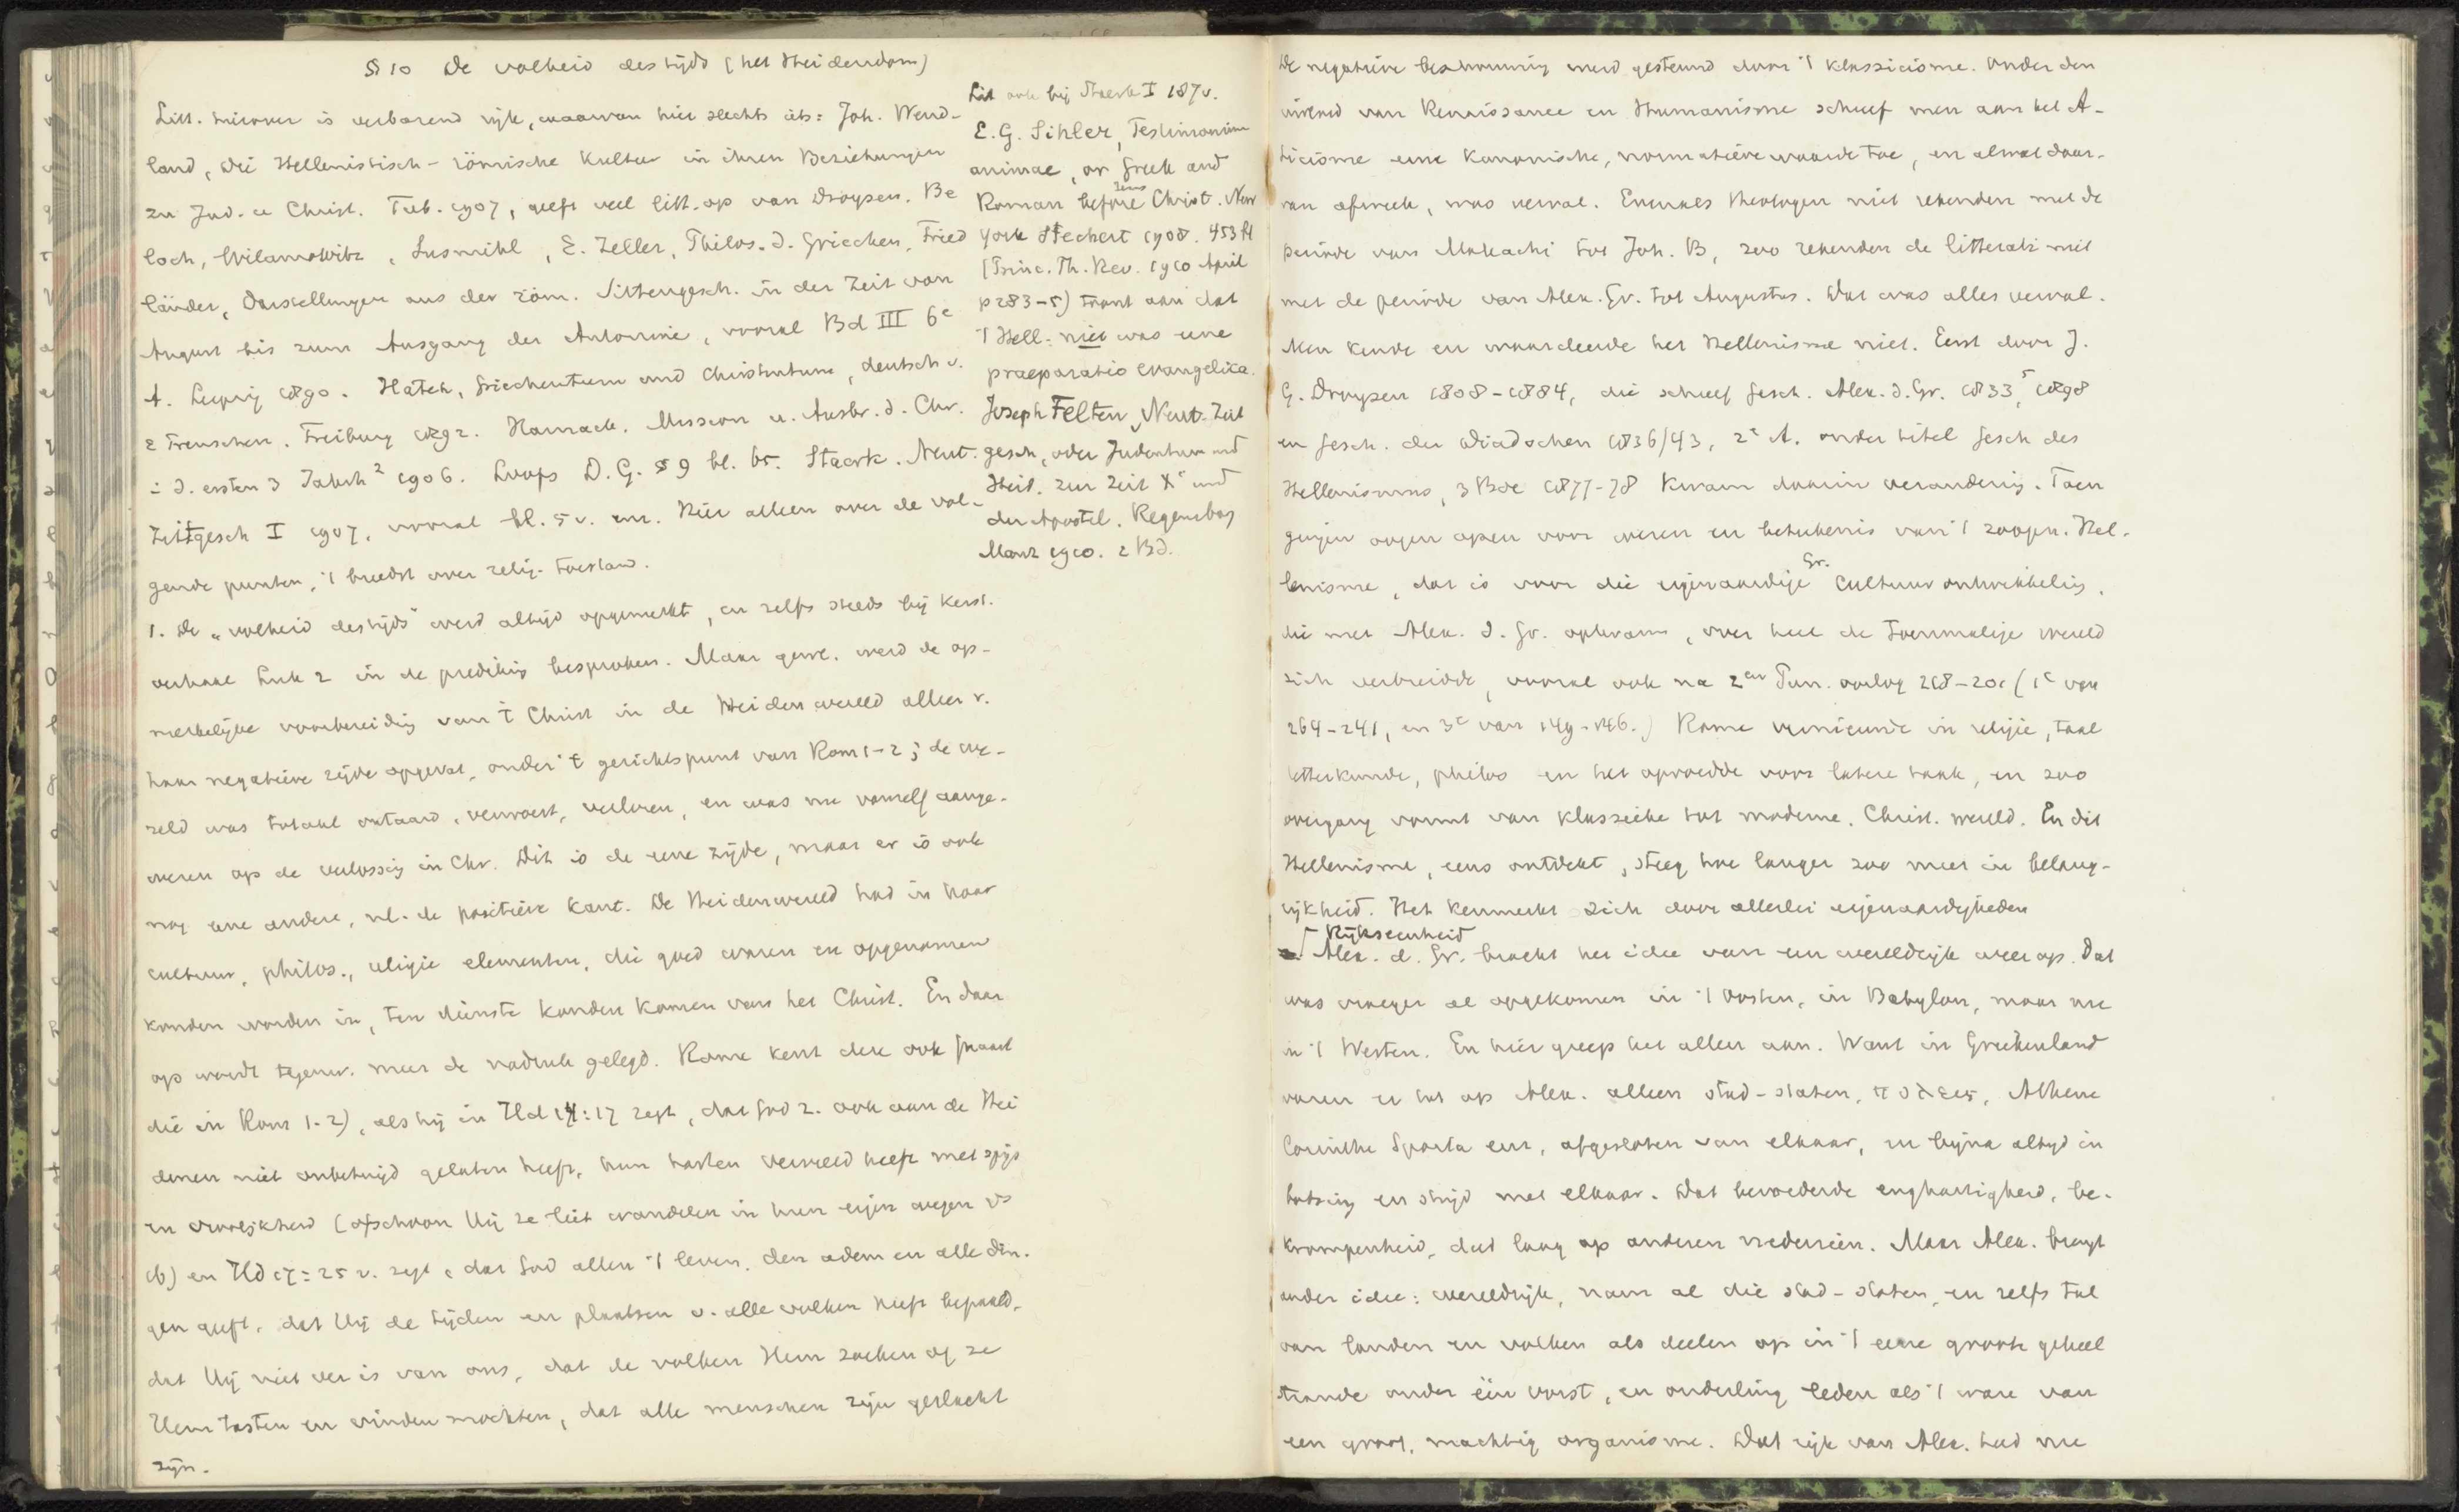 § 10 De volheid des tijds (het Heidendom)
Litt. hierover is verbazend rijk, waarvan hier slechts iets: Joh. Wend-
land, die Hellenistisch-römische Kultur in ihren Beziehungen
zu Jud. u Christ. Tüb. 1907, geeft veel litt. op van Droysen. Be
loch, Wilamowitz, Susmihl, E. Zeller, Philos. d. Griechen, Fried
länder, Darstellungen aus der röm. Sittengesch. in der Zeit von
August bis zum Ausgang der Antonine, vooral Bd III 6e
A. Leipzig 1890. Hatch, Griechentum und Christentum, deutsch v.
E Preuschen. Freiburg 1892. Harnack. Mission u. Ausbr. d. Chr.
i d. ersten 3 Jahrh² 1906. Loofs D.G. § 9 bl. 65. Staerk. Neut.
Zeitgesch I 1907, vooral bl. 5 v. enz. Hier alleen over de vol-
gende punten, 't breedst over relig. toestand.
1. De „volheid des tijds" werd altijd opgemerkt, en zelfs steeds bij kerst.
verhaal Luk 2 in de prediking besproken. Maar gew. werd de op-
merkelijke voorbereiding van 't Christ in de Heidenwereld alleen v.
haar negatieve zijde opgevat, onder 't gezichtspunt van Rom 1-2; de we-
reld was totaal ontaard, verwoest, verloren, en was nu vanzelf aange-
wezen op de verlossing in Chr. Dit is de eene zijde, maar er is ook
nog eene andere, nl. de positieve kant. De Heidenwereld had in haar
cultuur, philos., religie elementen, die goed waren en opgenomen
konden worden in, ten dienste konden komen van het Christ. En daar
op wordt tegenw. meer de nadruk gelegd. Rome kent deze ook (naast
die in Rom 1-2), als hij in Hd 14:17 zegt, dat God z. ook aan de Hei
denen niet onbetuigd gelaten heeft, hun harten vervuld heeft met spijs
en vroolijkheid (ofschoon Hij ze liet wandelen in hun eigen wegen vs
16) en Hd 17:25 v. zegt, dat God allen 't leven, den adem en alle din-
gen geeft, dat Hij de tijden en plaatsen v. alle volken heeft bepaald,
dat Hij niet ver is van ons, dat de volken Hem zoeken of ze
Hem tasten en vinden mochten, dat alle menschen zijn geslacht
zijn.
Litt ook bij Staerk I 187 v.
E.G. Sihler, Testimonium
animae, or Greek and
Roman before Jesus Christ. New
York Stechert 1908. 453 bl
(Princ. Th. Rev. 1910 April
p 283-5) toont aan dat
't Hell. niet was eene
praeparatio evangelica.
Joseph Felten, Neut. Zeit
gesch. oder Judentum und
Heid. zur Zeit Xi und
der Apostel. Regensburg
Manz 1910. 2 Bd.
De negatieve beschouwing werd gesteund door 't klassicisme. Onder den
invloed van Renaissance en Humanisme schreef men aan het A-
ticisme eene kanonische, normatieve waarde toe, en al wat daar-
van afweek, was verval. Evenals theologen niet rekenden met de
periode van Maleachi tot Joh. B, zoo rekenden de litterati niet
met de periode van Alex. Gr. tot Augustus. Dat was alles verval.
Men kende en waardeerde het Hellenisme niet. Eerst door J.
G. Droysen 1808-1884, die schreef Gesch. Alex. d. Gr. 1833, 5 1898
en Gesch. der Diadochen 1836/43, 2e A. onder titel Gesch des
Hellenismus, 3 Bde 1877-78 kwam daarin verandering. Toen
gingen oogen open voor wezen en beteekenis van 't zoogen. Hel-
lenisme, dat is voor die eigenaardige Gr. cultuurontwikkeling,
die met Alex. d. Gr. opkwam, over heel de toenmalige wereld
zich verbreidde, vooral ook na 2en Pun. oorlog 218-201 (1e van
264-241, en 3e van 149-146.) Rome vernieuwde in religie, taal
letterkunde, philos en het opvoedde voor latere taak, en zoo
overgang vormt van klassieke tot moderne. Christ. wereld. En dit
Hellenisme, eens ontdekt, steeg hoe langer zoo meer in belang-
rijkheid. Het kenmerkt zich door allerlei eigenaardigheden
Rijkseenheid
a Alex. d. Gr. bracht het idee van een wereldrijk weer op. Dat
was vroeger al opgekomen in 't Oosten, in Babylon, maar nu
in 't Westen. En hier greep het allen aan. Want in Griekenland
waren er tot op Alex. alleen stad-staten, πολεις, Athene
Corinthe Sparta enz, afgesloten van elkaar, en bijna altijd in
botsing en strijd met elkaar. Dat bevorderde enghartigheid, be-
krompenheid, deed laag op anderen nederzien. Maar Alex. bragt
ander idee: wereldrijk, nam al die stad-staten, en zelfs tal
van landen en volken als deelen op in 't eene groote geheel
staande onder één vorst, en onderling leden als 't ware van
een groot, machtig organisme. Dat rijk van Alex. had nu